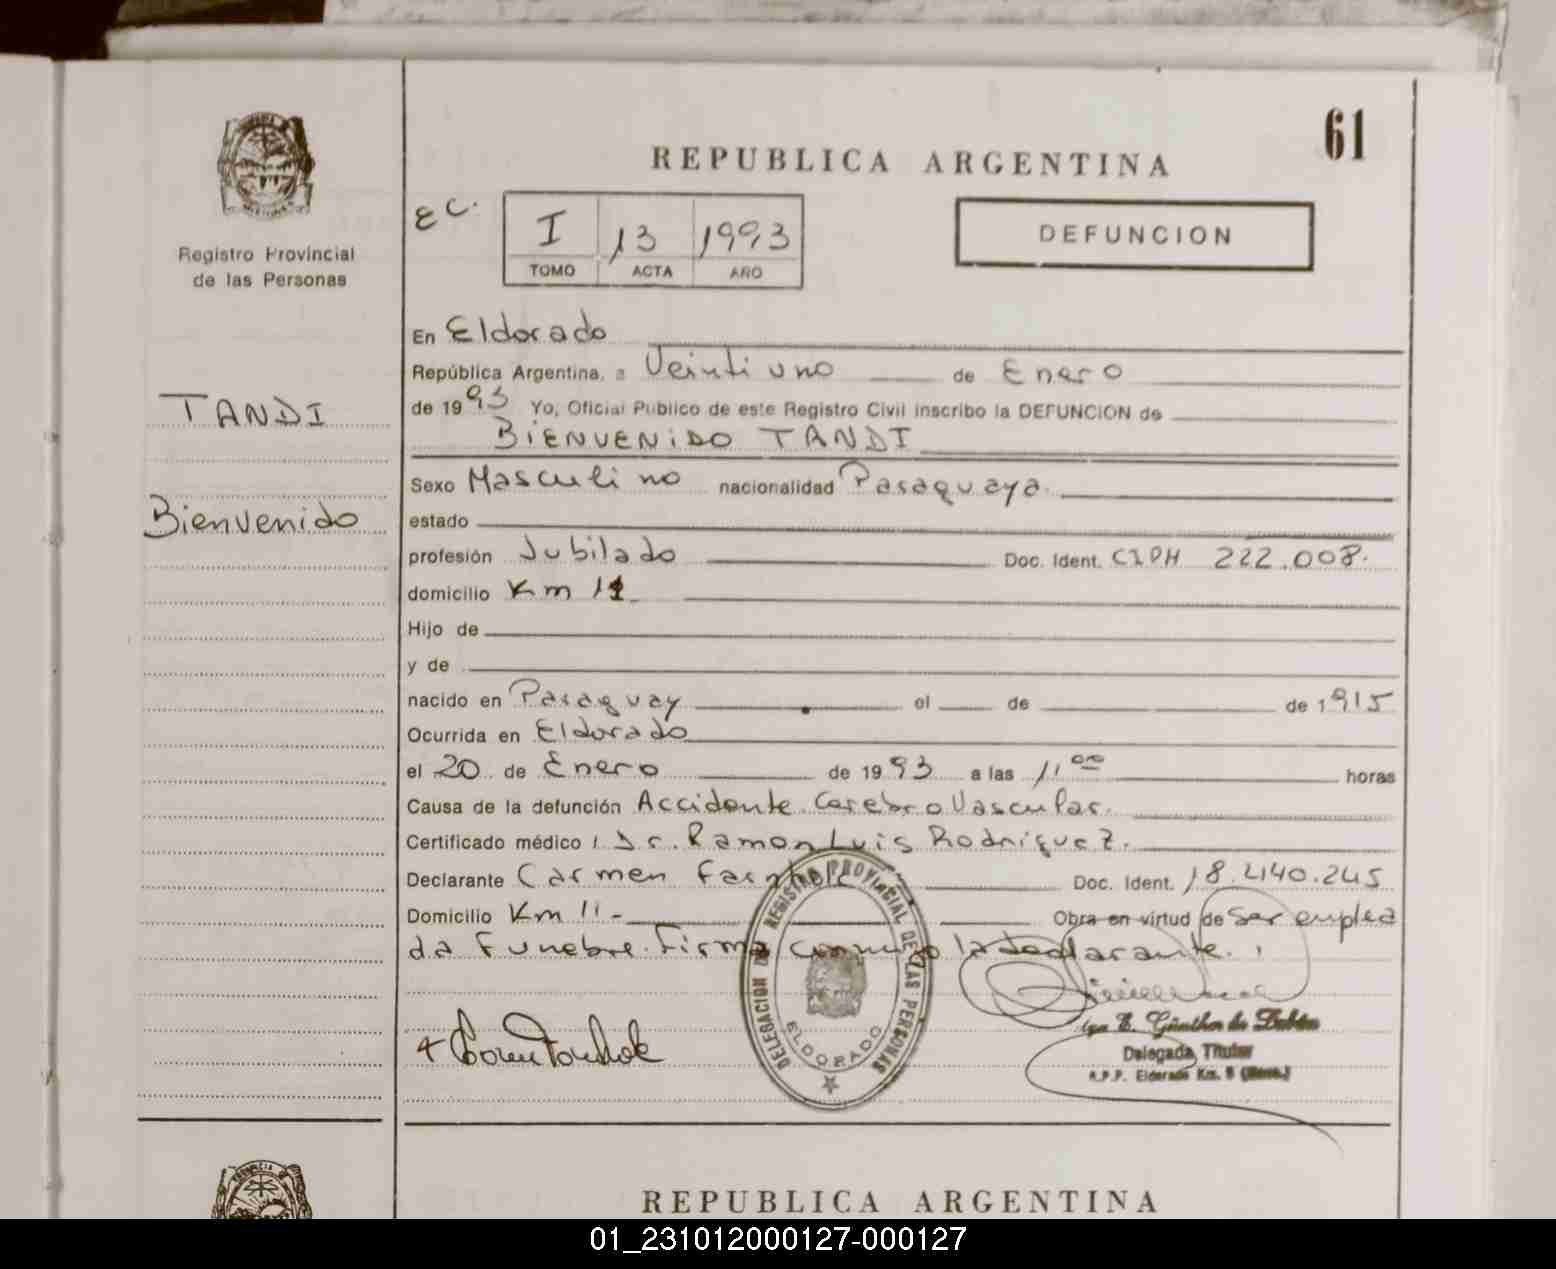 61
REPUBLICA ARGENTINA
Registro Provincial
de las Personas
EC.
I 13 1993
TOMO ACTA AÑO
DEFUNCION
TANDI
Bienvenido
En Eldorado
República Argentina, a Veintiuno de Enero
de 1993 Yo, Oficial Público de este Registro Civil inscribo la DEFUNCION de
BIENVENIDO TANDI
Sexo Masculino nacionalidad Paraguaya.
estado
profesión Jubilado Doc. Ident. CIPH 222.008.
domicilio Km 11
Hijo de
y de
nacido en Paraguay el de de 1915
Ocurrida en Eldorado
el 20 de Enero de 1993 a las 11,00 horas
Causa de la defunción Accidente Cerebro Vascular.
Certificado médico Dr. Ramon Luis Rodriguez.
Declarante Carmen Doc. Ident. 18.440.245
Domicilio Km 11 - Obra en virtud de ser emplea
da Funebre. Firma conmigo la declarante.
DELEGACION DEL REGISTRO PROVINCIAL DE LAS PERSONAS
ELDORADO
E. Günther de
Delegada Titular
R.P.P. Eldorado Km. 9
REPUBLICA ARGENTINA
01_231012000127-000127